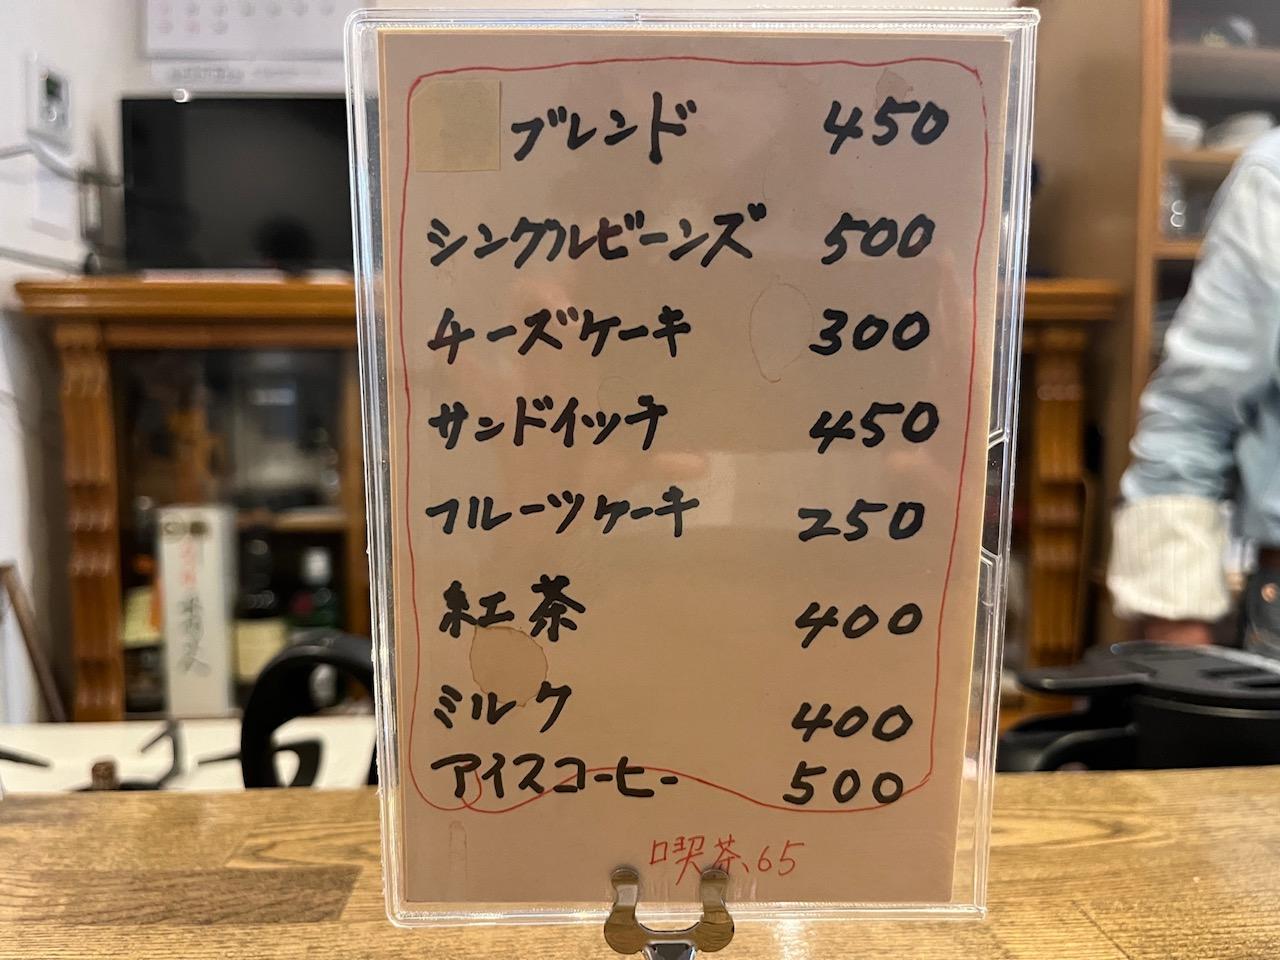 ブレンド 450
シングルビーンズ 500
チーズケーキ 300
サンドイッチ 450
フルーツケーキ 250
紅茶 400
ミルク 400
アイスコーヒー 500
喫茶、65